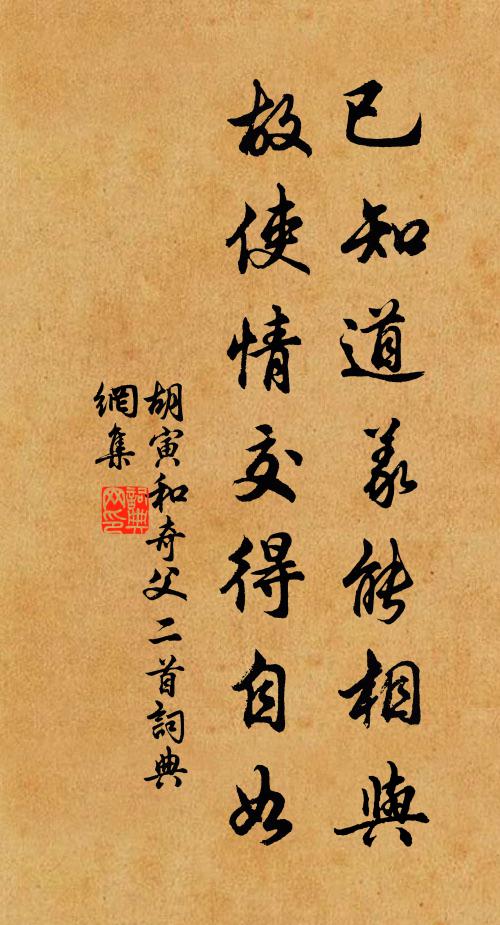 已知道義能相與
故使情交得自如
胡寅和奇父二首詞典
網集
詞典網印